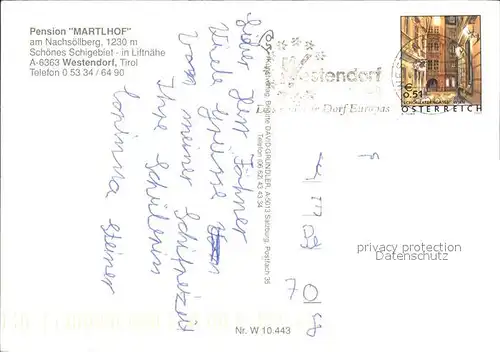 Pension "MARTLHOF"
am Nachsöllberg, 1230 m
Schönes Schigebiet - in Liftnähe
A-6363 Westendorf, Tirol
Telefon 0 53 34 / 64 90
Westendorf
Dorf Europas
€ 0,51
ÖSTERREICH
Lieber Herr
Viele Grüsse
von meiner Schifreizeit
Ihre Schülerin
Corinna Steiner
Brigitte DAVID-GRÜNDLER, A-5013 Salzburg, Postfach 35
Telefon (06 62) 43 43 34
70
privacy protection
Datenschutz
Nr. W 10.443